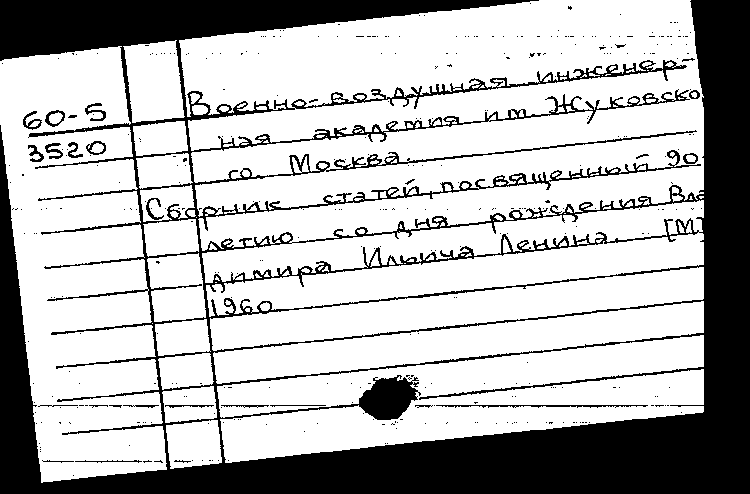 60-5
3520
Военно-воздушная инженер-
ная академия им. Жуковско
го. Москва.
Сборник статей, посвященный 90-
летию со дня рождения Вла
димира Ильича Ленина. [М]
1960